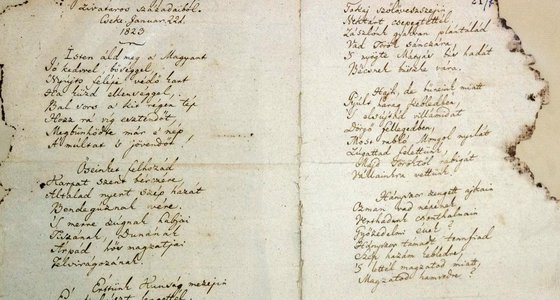 Zivataros Századaiból.
Cseke Januar. 22d.
1823
Isten áld meg a Magyart
Jó kedvvel, bőséggel,
Nyújts feléje védő kart
Ha küzd ellenséggel;
Bal sors a kit régen tép
Hozz rá víg esztendőt,
Megbűnhödte már e nép
A múltat 's jövendőt!
Őseinket felhozád
Kárpát szent bérczére,
Általad nyert szép hazát
Bendegúznak vére.
'S merre zúgnak habjai
Tiszának Dunának
Árpád hős magzatjai
Felvirágozának.
Értünk Kunság mezein
Tokaj szőlővesszein
Nektárt csepegtettél.
Zászlónk gyakran plántálád
Vad Török sánczára
'S nyögte Mátyás bús hadát
Bécsnek büszke vára.
Hajh, de bűneink miatt
Gyúlt harag kebledben,
'S elsújtád villámidat
Dörgő fellegedben,
Most rabló Mongol nyilát
Zúgattad felettünk,
Majd Töröktől rabigát
Vállainkra vettünk.
Hányszor zengett ajkain
Ozmán vad népének
Vert hadunk csonthalmain
Győzedelmi ének!
Hányszor támadt tenfiad
Szép hazám kebledre,
'S lettél magzatod miatt
Magzatod hamvvedre?